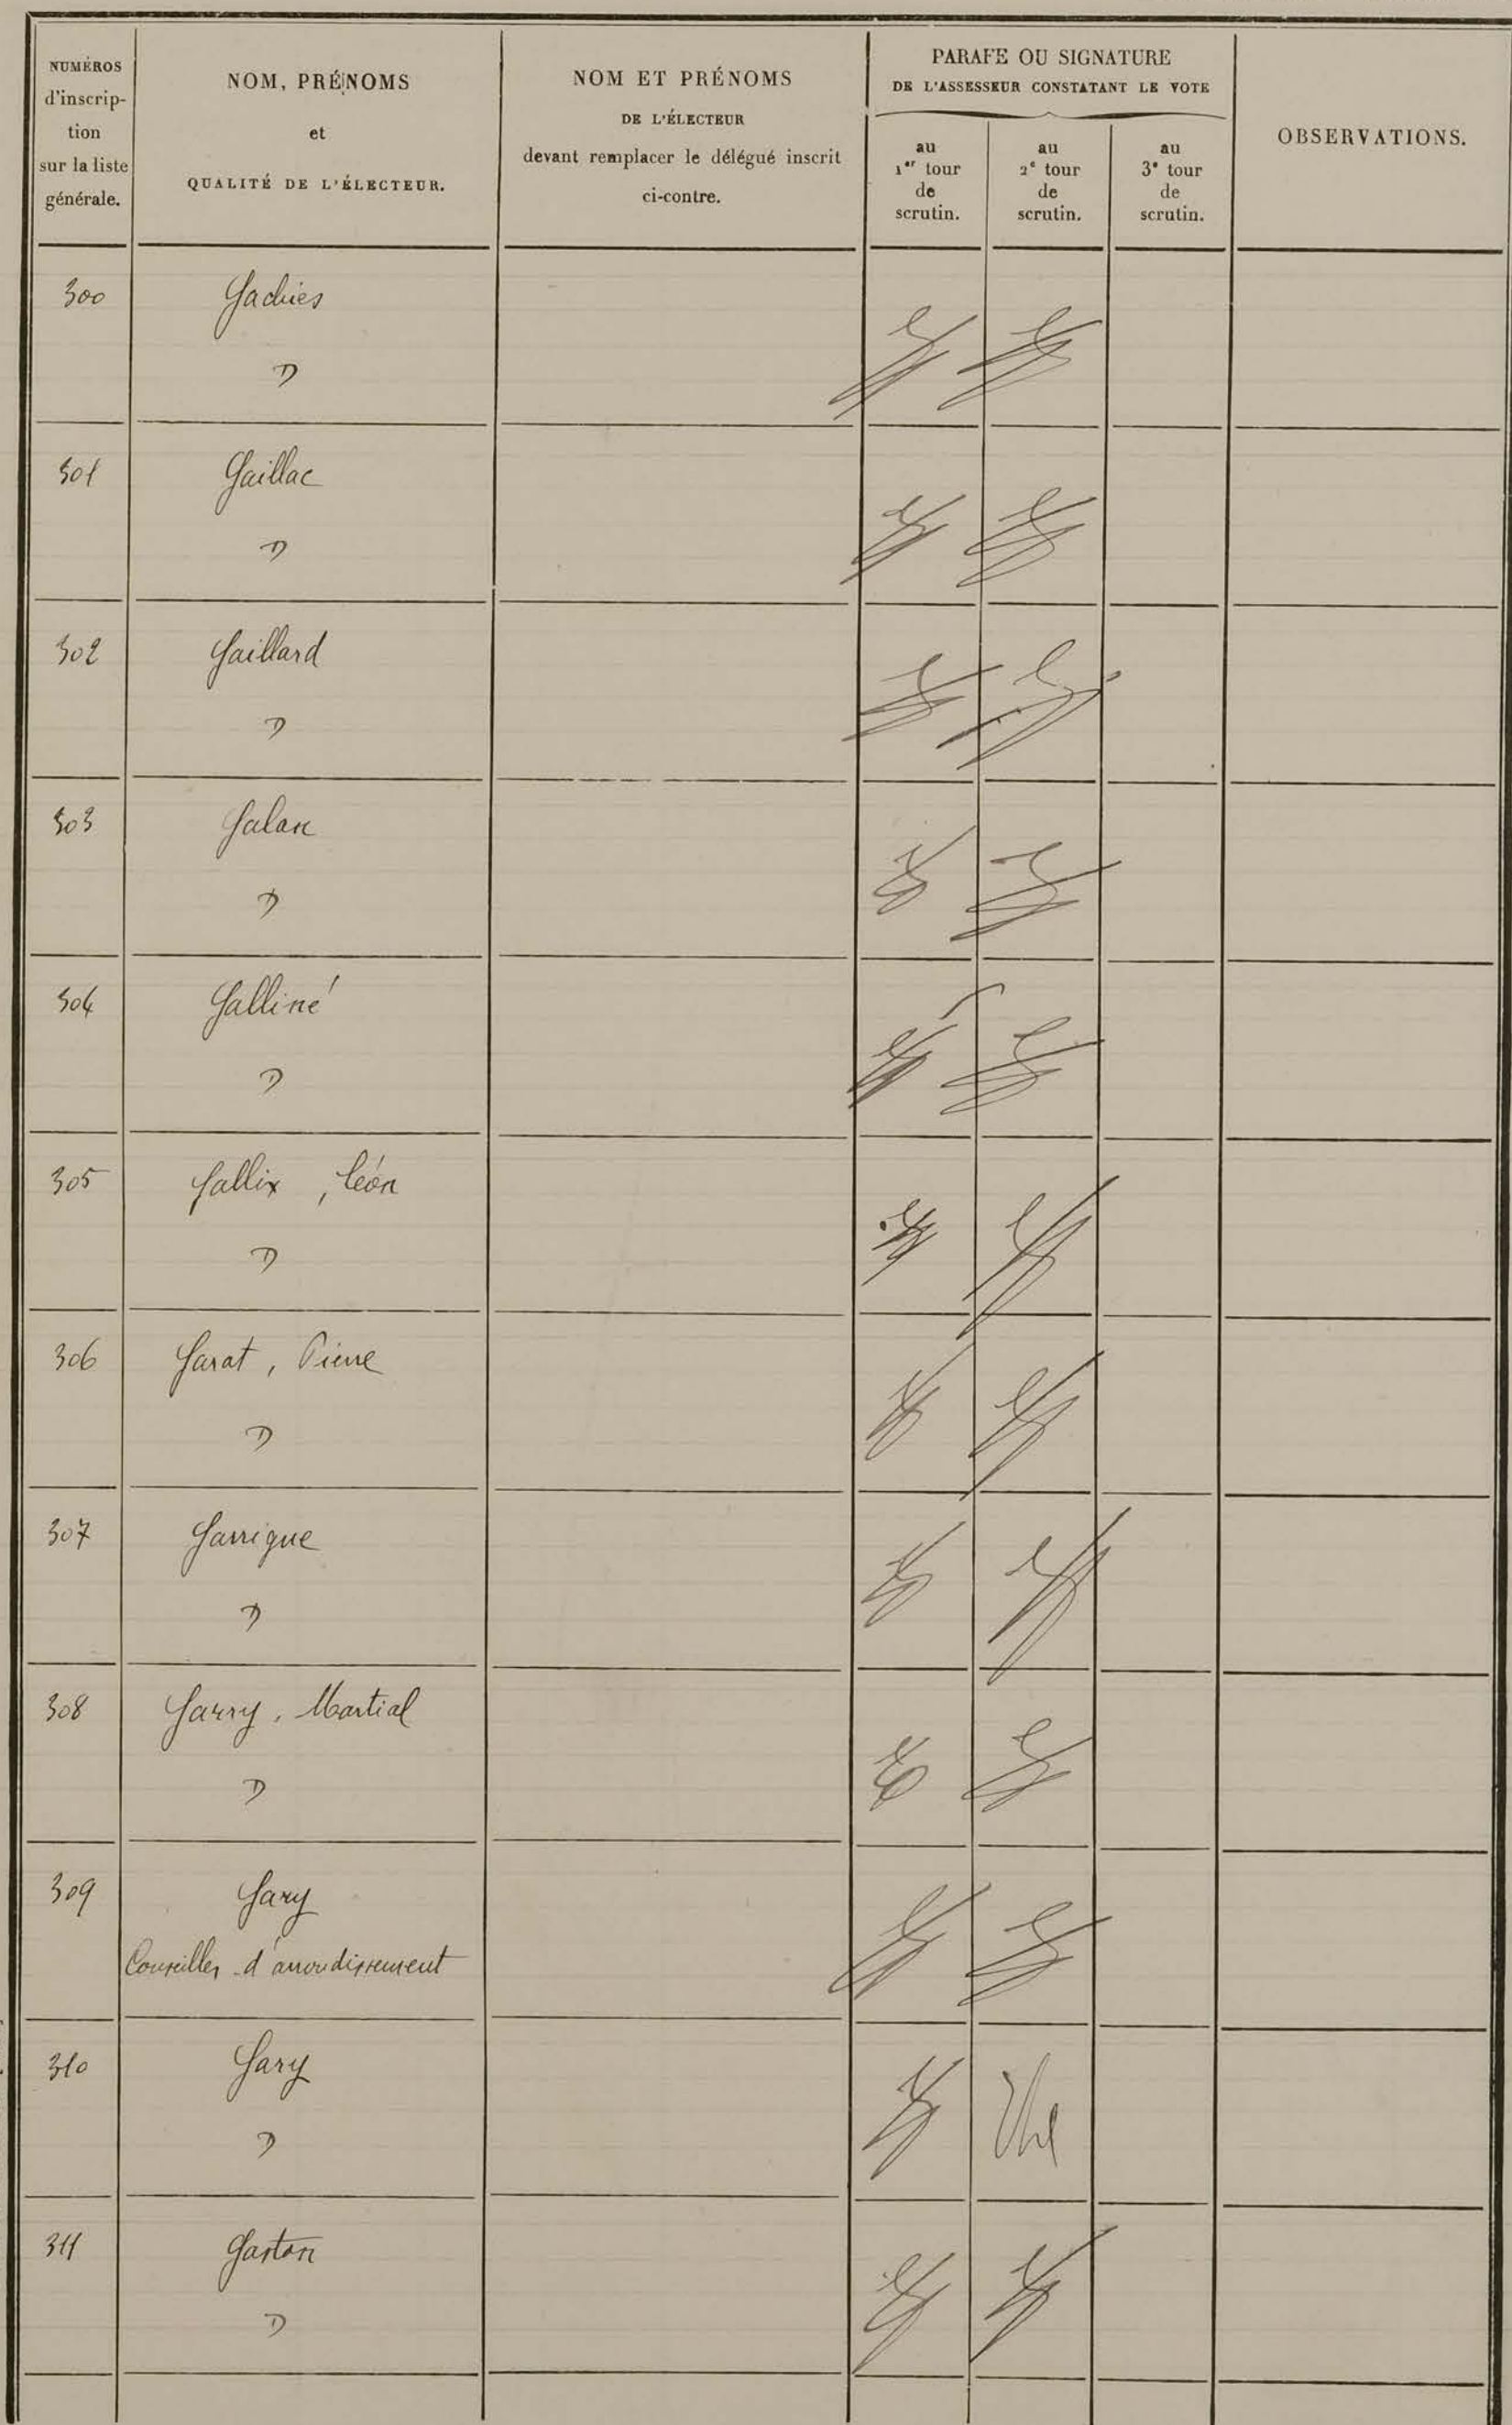 NUMÉROS
d'inscrip-
tion
sur la liste
générale.
NOM, PRÉNOMS
et
QUALITÉ DE L'ÉLECTEUR.
NOM ET PRÉNOMS
DE L'ÉLECTEUR
devant remplacer le délégué inscrit
ci-contre.
PARAFE OU SIGNATURE
DE L'ASSESSEUR CONSTATANT LE VOTE
au
1er tour
de
scrutin.
au
2e tour
de
scrutin.
au
3e tour
de
scrutin.
OBSERVATIONS.
300 Gachies
D
301 Gaillac
D
302 Gaillard
D
303 Galan
D
304 Galliné
D
305 Gallix, Léon
D
306 Garat, Pierre
D
307 Garrigue
D
308 Garry, Martial
D
309 Gary
Conseiller d'arrondissement
310 Gary
D
311 Gaston
D